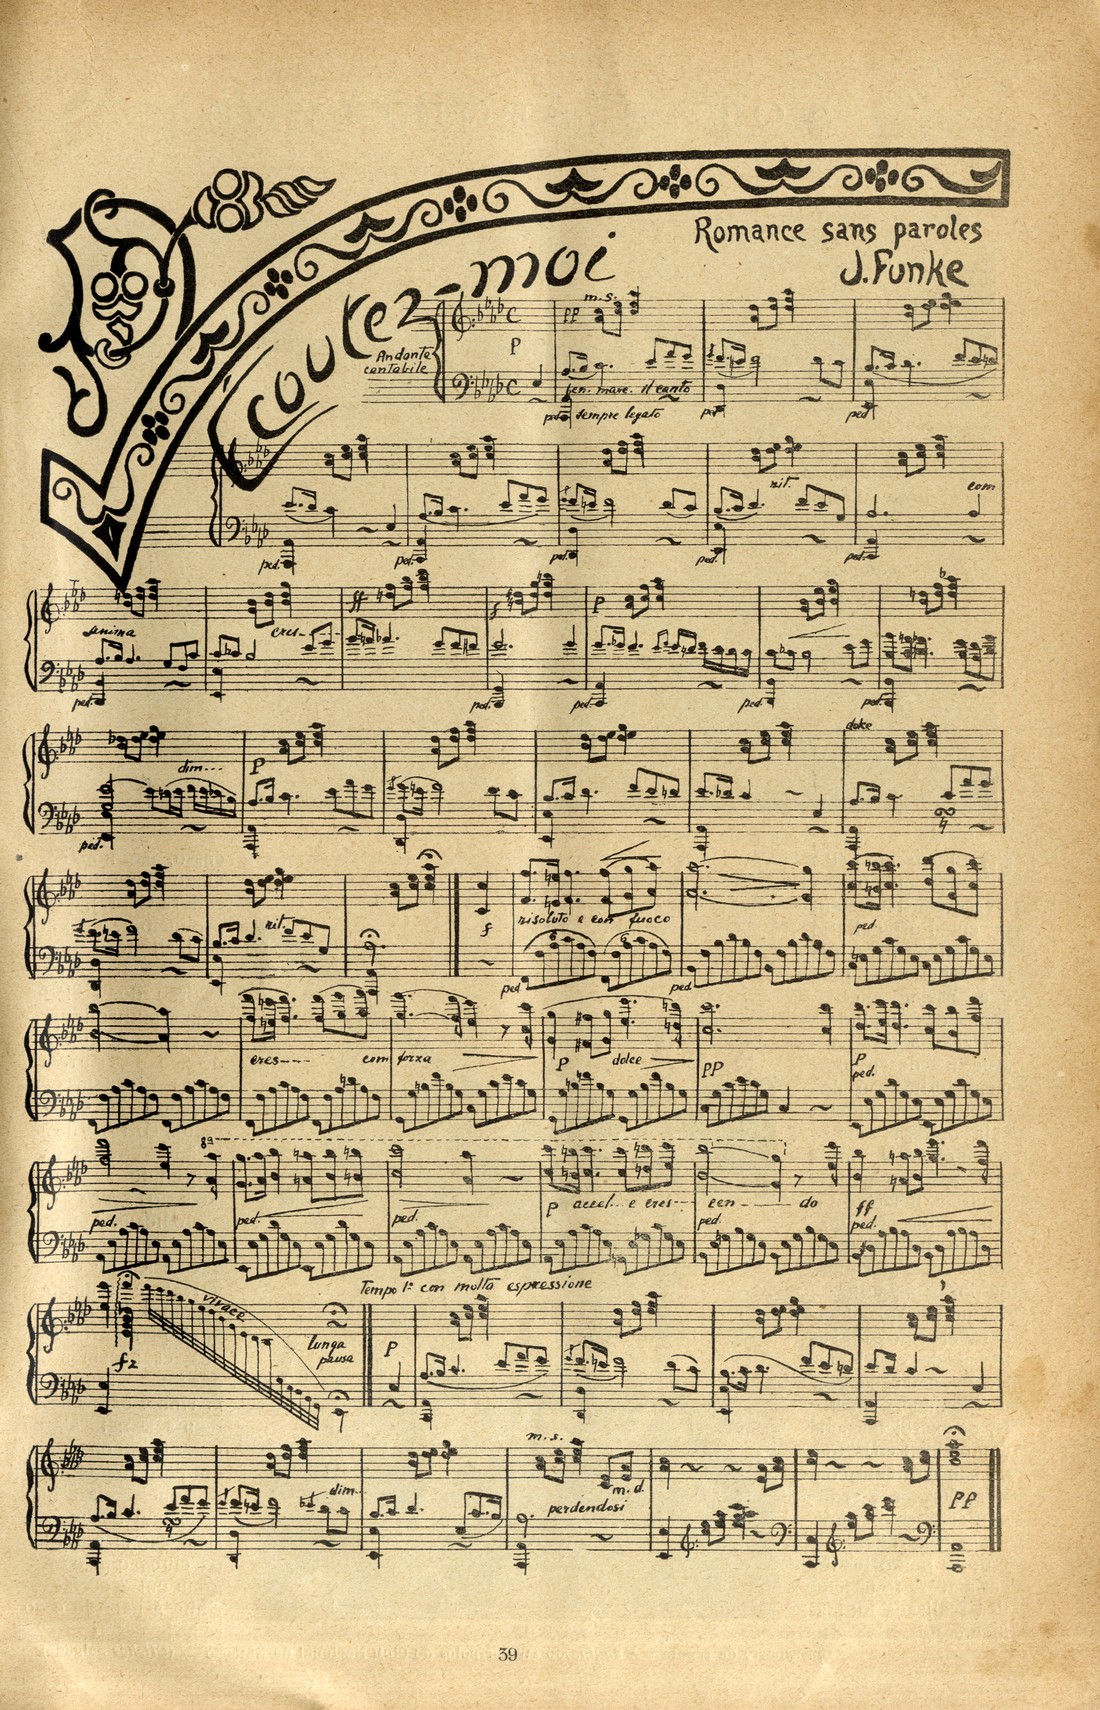 Ecoutez-moi
Romance sans paroles
J. Funke
Andante
cantabile
pp m.s.
p
ten. marc. il canto
ped. sempre legato ped. ped.
rit.
con
ped. ped. ped. ped. ped.
anima cres-- ff f p
ped. ped. ped. ped. ped.
dim--- p dolce
ped.
rit. f risoluto e con fuoco
ped. ped. ped.
cres---- com forza p dolce pp p
ped.
8a
p accel... e cres--- cen---- do ff
ped. ped. ped. ped. ped.
Tempo Iº con molta espressione
vivace
fz
lunga
pausa
p
dim-- m.s.
m.d.
perdendosi pp
39